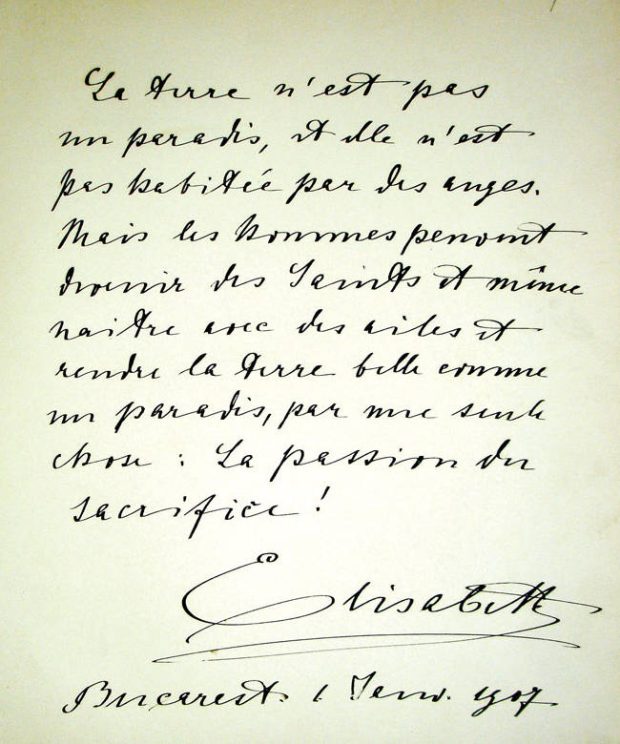 La terre n'est pas
un paradis, et elle n'est
pas habitée par des anges.
Mais les hommes peuvent
devenir des Saints et même
naitre avec des ailes et
rendre la terre belle comme
un paradis, par une seule
chose : La passion du
sacrifice !
Elisabeth
Bucarest. 1 Janv. 1907.